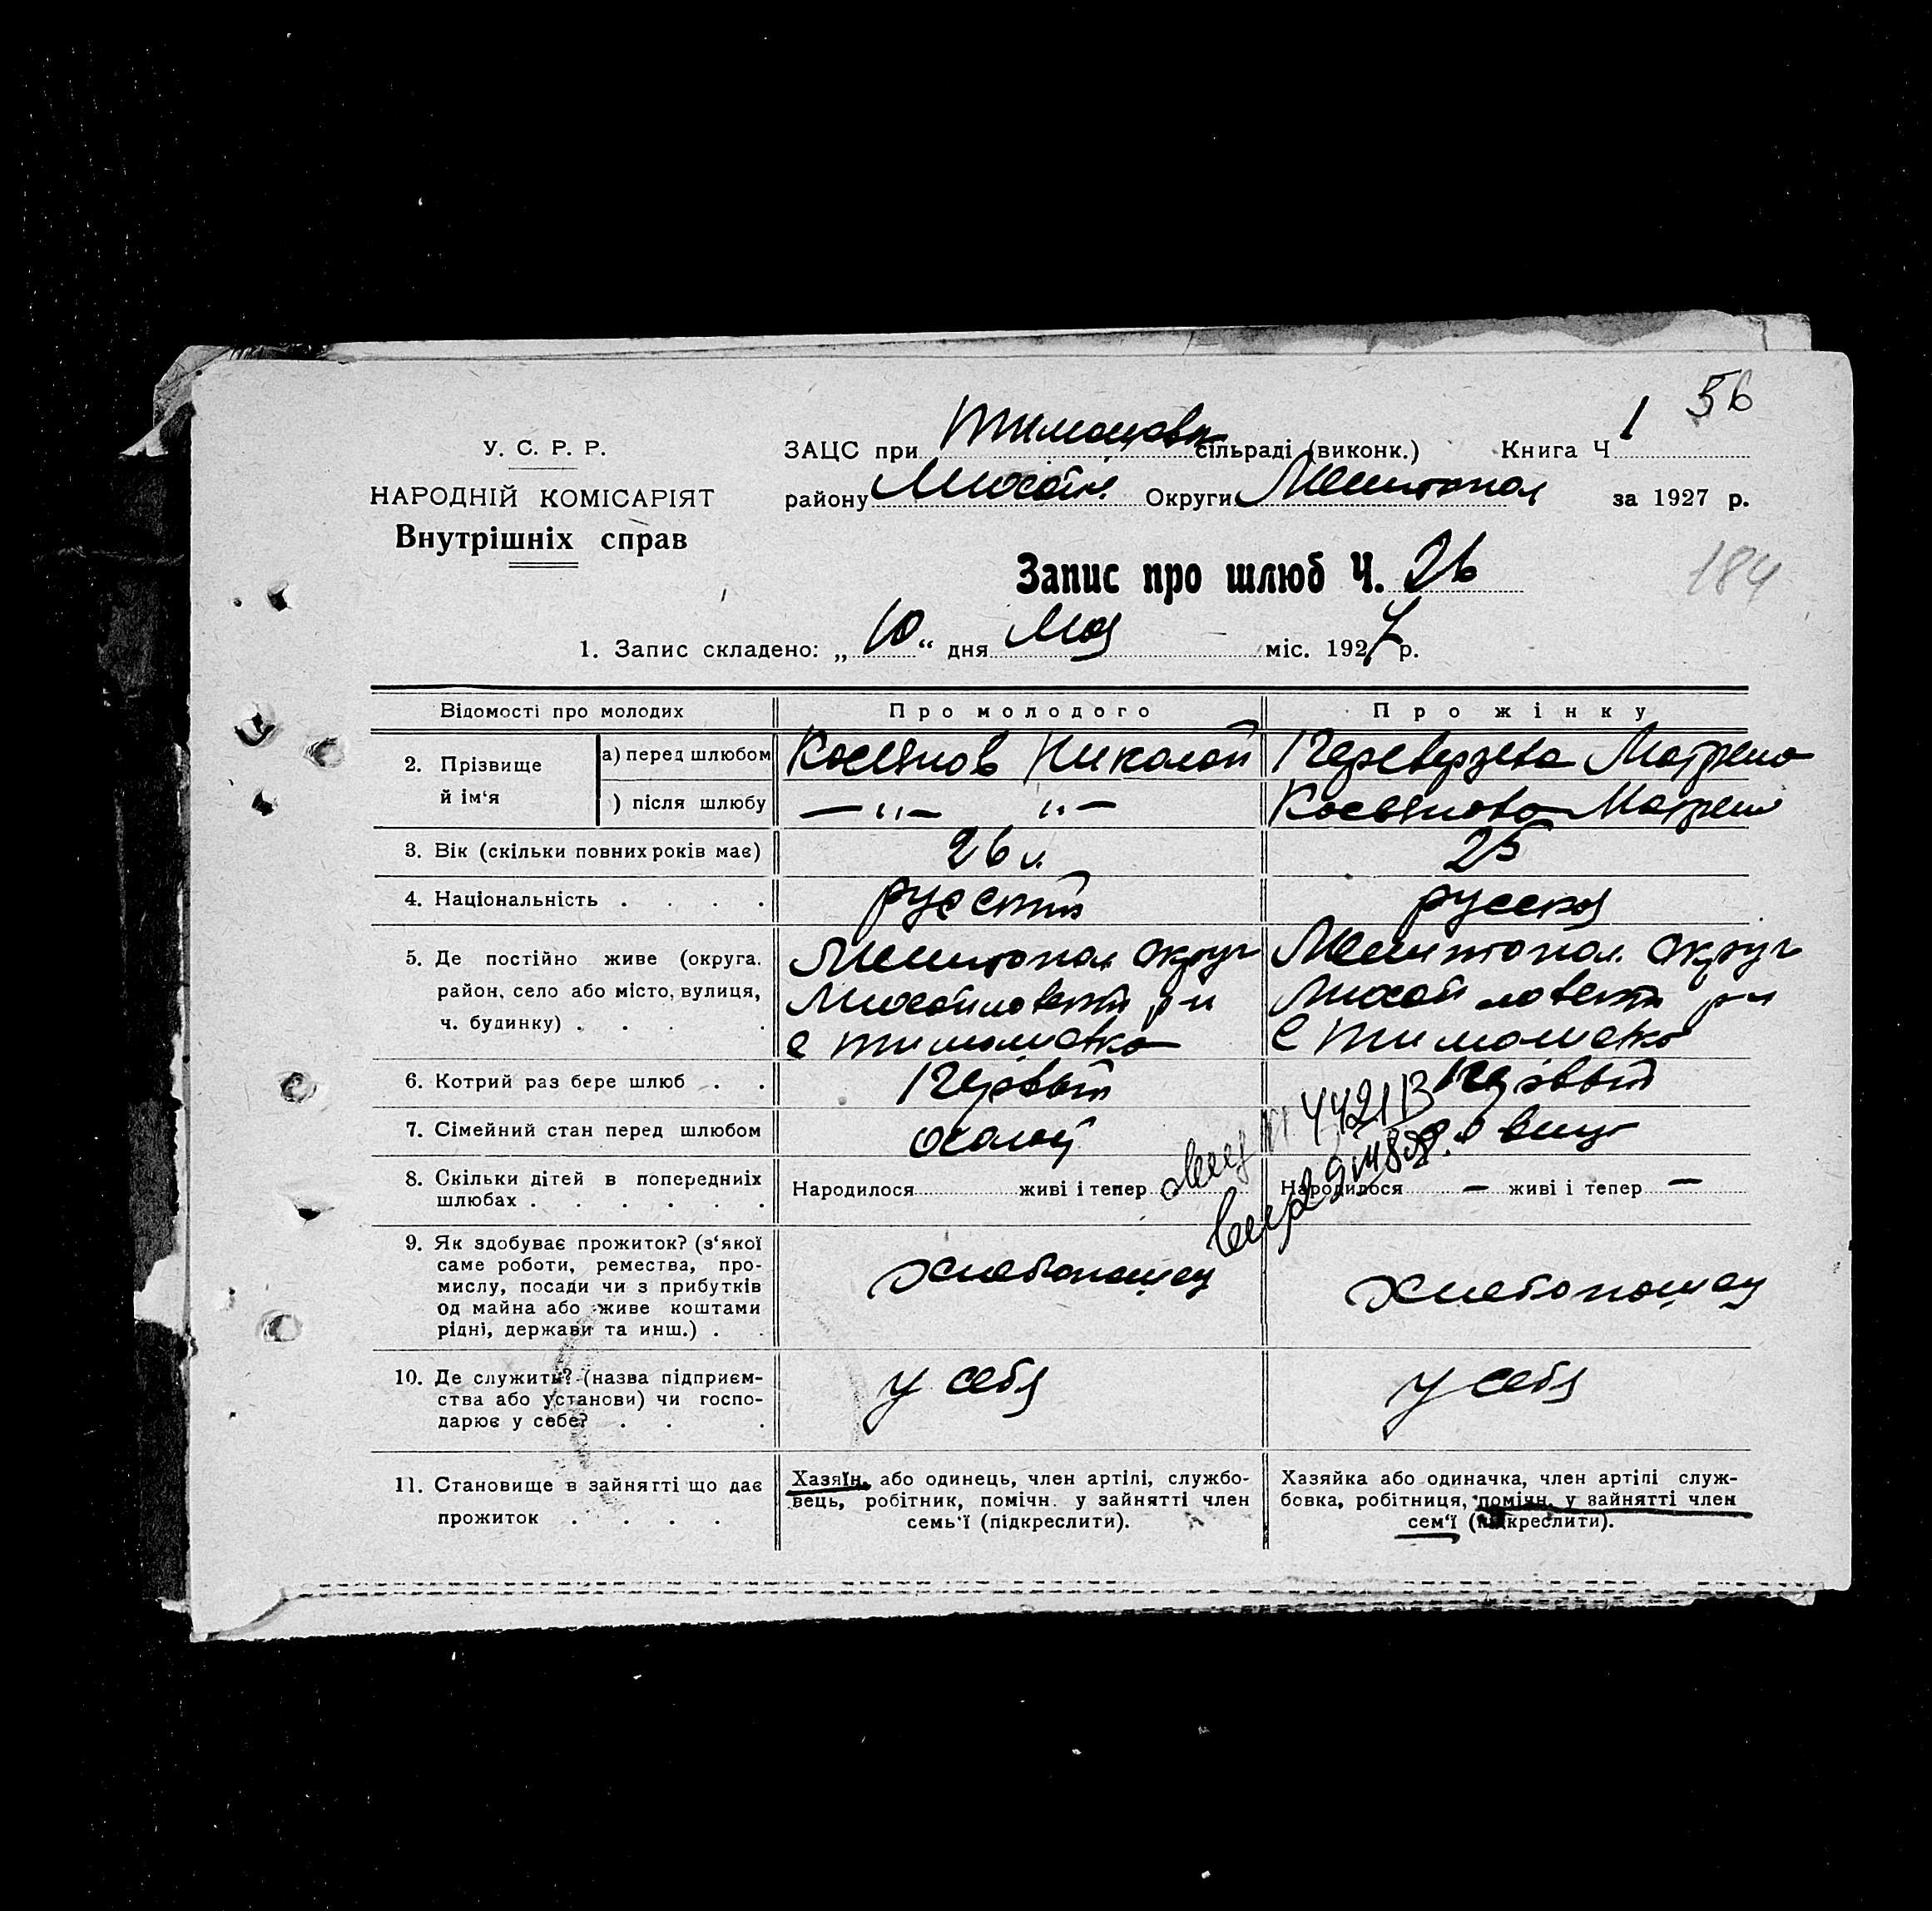 56
У. С. Р. Р.
НАРОДНІЙ КОМІСАРІЯТ
Внутрішніх справ
ЗАЦС при Тимошовк сільраді (виконк.) Книга Ч 1
району Михайл. Округи Мелитопол за 1927 р.
Запис про шлюб Ч. 26
184
1. Запис складено: „ 10 “ дня Мая міс. 1927 р.
Відомості про молодих Про молодого Про жінку
2. Прізвище й ім‘я
а) перед шлюбом Косянов Николай Переверзева Матрена
) після шлюбу — „ — „ — Косянова Матрена
3. Вік (скільки повних років має) 26 л. 25
4. Національність . . . . русский русская
5. Де постійно живе (округа, Мелитопол округ Мелитопол. округ
район, село або місто, вулиця, Михайловский р-н Михайловский р-н
ч. будинку) . . . . с Тимошевка с Тимошевка
6. Котрий раз бере шлюб . . Первый Первый
7. Сімейний стан перед шлюбом холост
8. Скільки дітей в попередніх
шлюбах . . . . . . Народилося живі і тепер Народилося — живі і тепер —
9. Як здобуває прожиток? (з‘якої
саме роботи, ремества, про-
мислу, посади чи з прибутків
од майна або живе коштами
рідні, держави та инш.) . . хлебопашец хлебопашец
10. Де служить? (назва підприєм-
ства або установи) чи госпо-
дарює у себе? . . . у себя у себя
11. Становище в зайнятті що дає
прожиток . . . .
Хазяїн, або одинець, член артілі, службо-
вець, робітник, помічн. у зайнятті член
семь‘ї (підкреслити).
Хазяйка або одиначка, член артілі служ-
бовка, робітниця, помічн. у зайнятті член
сем‘ї (підкреслити).